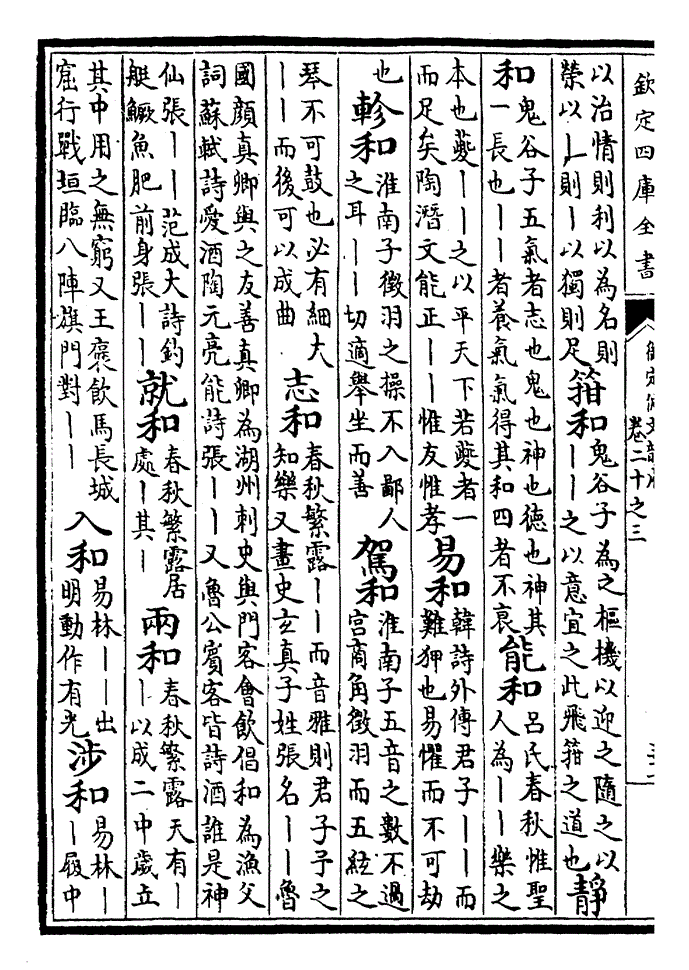 欽定四庫全書
御定佩文韻府
卷二十之三
以治情則利以為名則
榮以丨則丨以獨則足
箝和
鬼谷子為之樞機以迎之隨之以
丨丨之以意宜之此飛箝之道也
靜
和
鬼谷子五氣者志也鬼也神也德也神其
一長也丨丨者養氣氣得其和四者不衰
能和
呂氏春秋惟聖
人為丨丨樂之
本也夔丨丨之以平天下若夔者一
而足矣陶潛文能正丨丨惟友惟孝
易和
韓詩外傳君子丨丨而
難狎也易懼而不可劫
也
軫和
淮南子徵羽之操不入鄙人
之耳丨丨切適舉坐而善
駕和
淮南子五音之數不過
宮商角徵羽而五絃之
琴不可鼓也必有細大
丨丨而後可以成曲
志和
春秋繁露丨丨而音雅則君子予之
知樂又畫史玄真子姓張名丨丨魯
國顏真卿與之友善真卿為湖州刺史與門客會飲倡和為漁父
詞蘇軾詩愛酒陶元亮能詩張丨丨又魯公賓客皆詩酒誰是神
仙張丨丨范成大詩釣
艇鱖魚肥前身張丨丨
就和
春秋繁露居
處丨其丨
兩和
春秋繁露天有丨
丨以成二中歲立
其中用之無窮又王褒飲馬長城
窟行戰垣臨八陣旗門對丨丨
入和
易林丨丨出
明動作有光
涉和
易林丨
丨履中